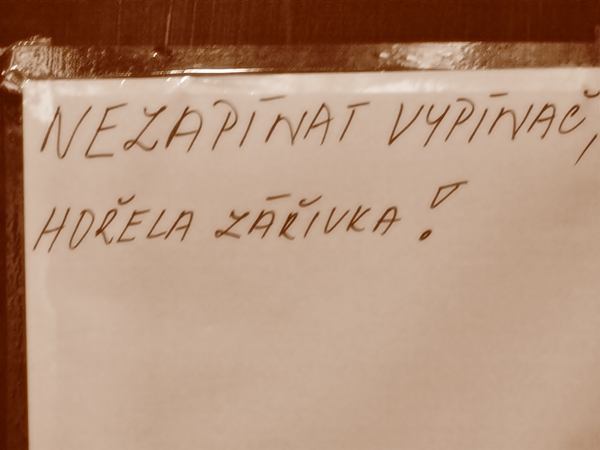 NEZAPÍNAT VYPÍNAČ,
HOŘELA ZÁŘIVKA!